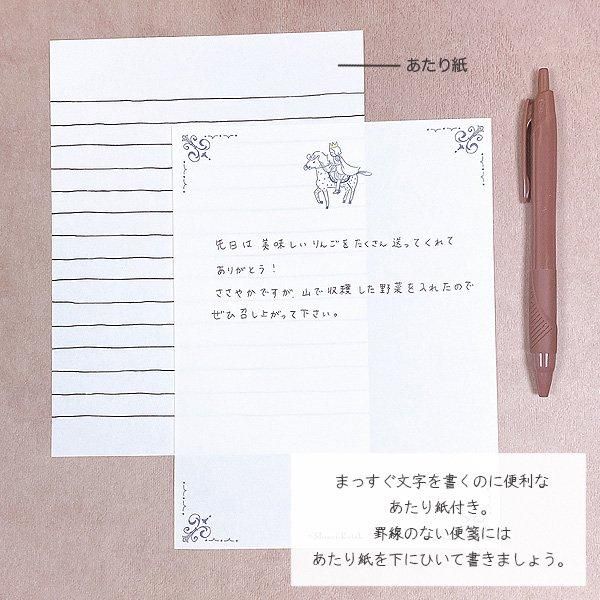 あたり紙
先日は美味しいりんごをたくさん送ってくれて
ありがとう！
ささやかですが、山で収穫した野菜を入れたので
ぜひ召し上がって下さい。
まっすぐ文字を書くのに便利な
あたり紙付き。
罫線のない便箋には
あたり紙を下にひいて書きましょう。